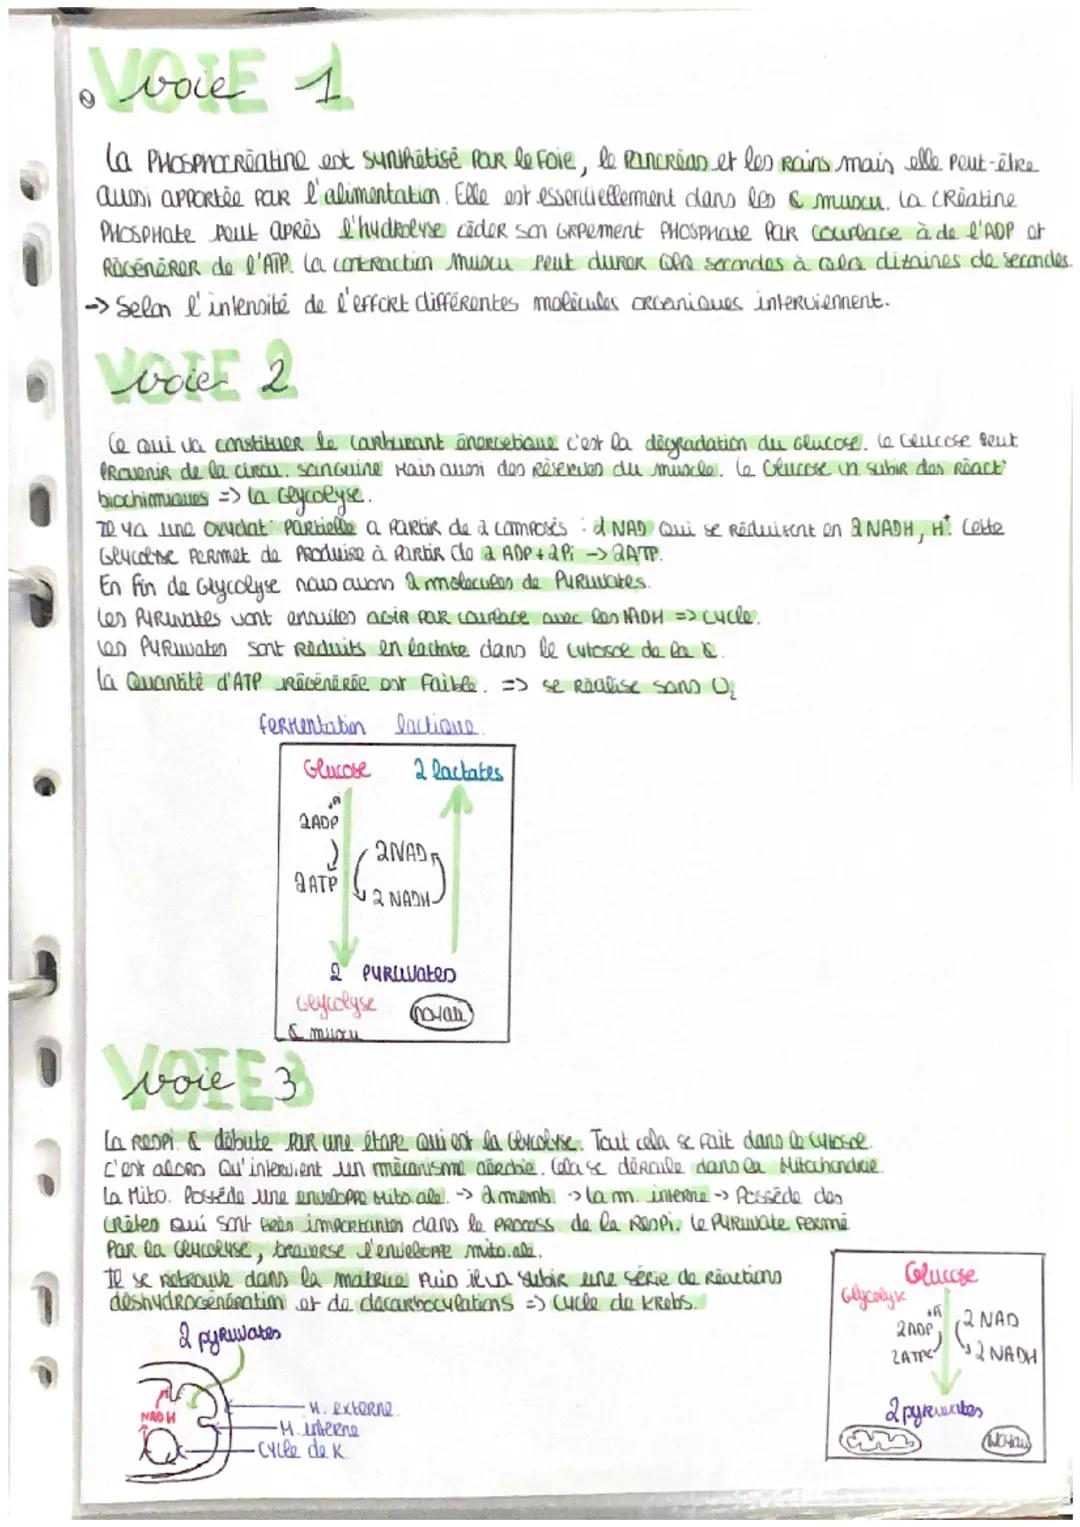 VOIE 1
voie 1
La PHOSPHOCRéatine est synthétisé PAR le Foie, le Pancréas et les Reins mais elle Peut-être
aussi apportée PAR l'alimentation. Elle est essentiellement dans les & muscu. La CRéatine
PHOSPHate peut après l'hydrolyse céder son GRPement PHOSPHate PAR courlace à de l'ADP et
RégénéRER de l'ATP. La contraction muscu Peut durer qlq secondes à qlq dizaines de secondes
-> Selon l'intensité de l'effort différentes molécules organiques interviennent.
VOIE 2
voie 2
Ce qui va constituer le carburant énergetique c'est la dégradation du Glucose. Le Glucose Peut
Provenir de la circu. sanguine Mais aussi des réserves du muscle. Le Glucose va subir des Réact°
biochimiques => la Glycolyse.
Il y a une oxydat° Partielle a Partir de 2 composés : 2 NAD qui se Réduisent en 2 NADH, H⁺. Cette
Glycolyse Permet de Produire à Partir de 2 ADP + 2Pi -> 2ATP.
En fin de Glycolyse nous avons 2 molécules de Pyruvates.
Les Pyruvates vont ensuites agir par courlace avec les NADH => Cycle.
Les Pyruvates sont Réduits en lactate dans le cytosol de la &.
La Quantité d'ATP régénérée est faible. => se Réalise sans O₂
fermentation lactique.
Glucose 2 lactates
+Pi
2ADP
2NAD
2ATP
2 NADH
2 Pyruvates
Glycolyse noyau
& muscu
VOIE 3
voie 3
La Respi. & débute PAR une étape qui est la Glycolyse. Tout cela se fait dans le cytosol.
C'est alors Qu'intervient un mécanisme aérobie. Cela se déroule dans la Mitochondrie.
La Mito. Possède une enveloppe mito.ale. -> 2 memb. -> la m. interne -> Possède des
CRêtes qui sont très importantes dans le Process de la Respi. Le Pyruvate fermé
Par la Glycolyse, traverse l'enveloppe mito.ale.
Il se retrouve dans la matrice Puis il va subir une série de Réactions
déshydrogénération et de décarbocylations => Cycle de Krebs.
2 pyruvates
NADH
M. externe
M. interne
Cycle de K
Glucose
Glycolyse
+Pi
2ADP 2 NAD
2ATP 2 NADH
2 pyruvates
Noyau